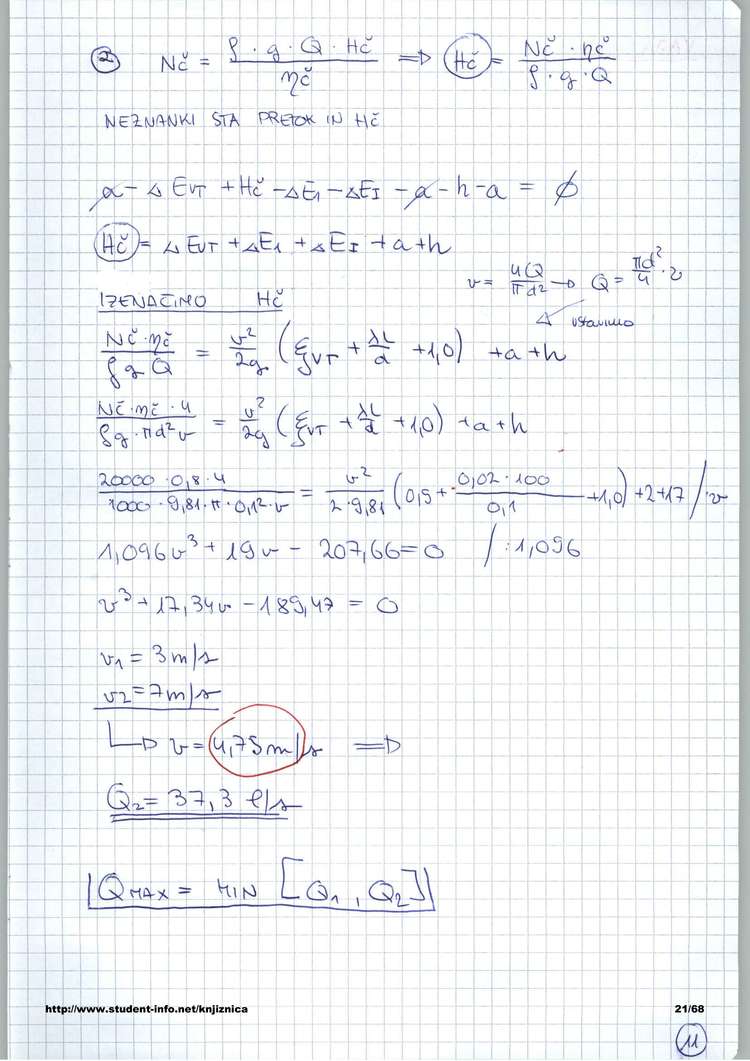 ② Nč = ρ · g · Q · Hč / ηč => Hč = Nč · ηč / ρ · g · Q
NEZNANKI STA PRETOK IN Hč
a - ΔEVT + Hč - ΔE1 - ΔEI - a - h - a = ∅
Hč = ΔEVT + ΔE1 + ΔEI + a + h
v = 4Q / πd² → Q = πd² / 4 · v
IZENAČIMO Hč
ustavimo
Nč · ηč / ρ g Q = v² / 2g (ξVT + λL / d + 1,0) + a + h
Nč · ηč · 4 / ρg · πd² v = v² / 2g (ξVT + λL / d + 1,0) + a + h
20000 · 0,8 · 4 / 1000 · 9,81 · π · 0,1² · v = v² / 2 · 9,81 (0,5 + 0,02 · 100 / 0,1 + 1,0) + 2 + 17 / · v
1,096v³ + 19v - 207,66 = 0 / : 1,096
v³ + 17,34v - 189,47 = 0
v1 = 3 m/s
v2 = 7 m/s
↳ v = 4,75 m/s =>
Q2 = 37,3 l/s
QMAX = MIN [Q1, Q2]
http://www.student-info.net/knjiznica 21/68
11